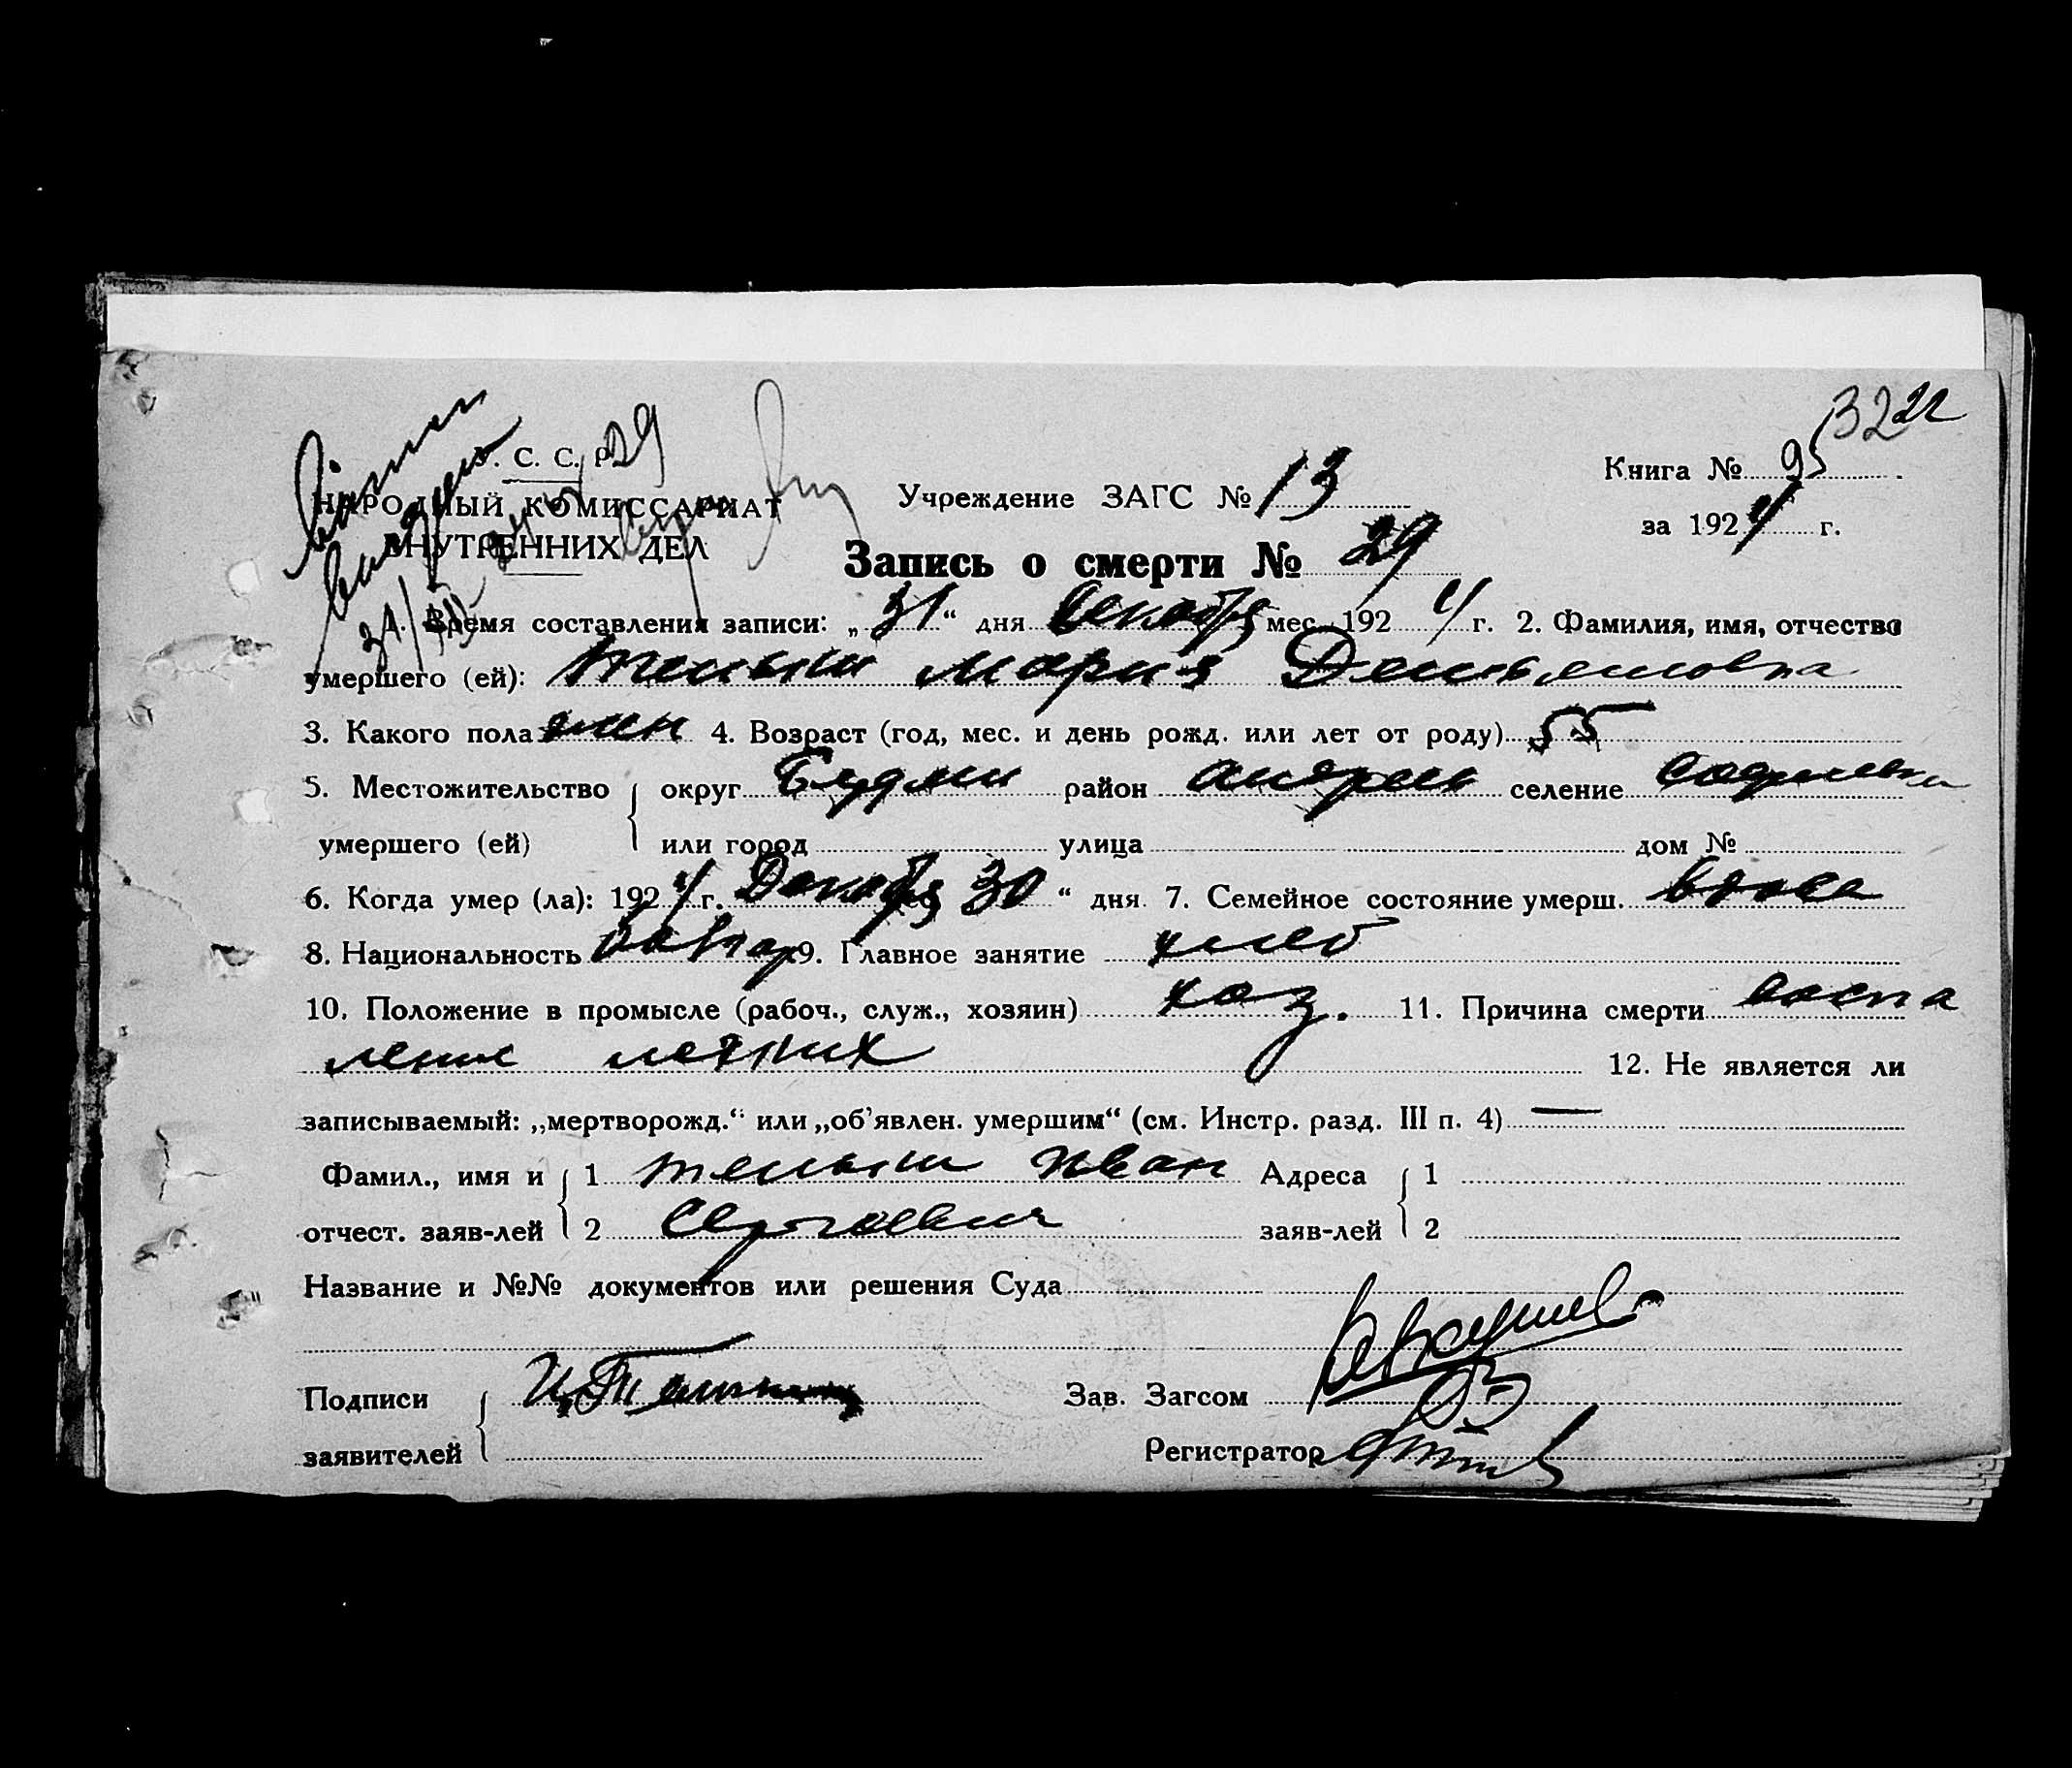 3222
У. С. С. Р.
29
НАРОДНЫЙ КОМИССАРИАТ
ВНУТРЕННИХ ДЕЛ
Учреждение ЗАГС № 13
Книга № 95
за 1924 г.
Запись о смерти № 29
1. Время составления записи: „31“ дня Декабря мес. 1924 г. 2. Фамилия, имя, отчество
умершего (ей): Мария Демьяновна
3. Какого пола жен 4. Возраст (год, мес. и день рожд. или лет от роду) 55
5. Местожительство округ район селение
умершего (ей) или город улица дом №
6. Когда умер (ла): 1924 г. Декабря 30“ дня 7. Семейное состояние умерш. вдова
8. Национальность 9. Главное занятие хлеб
10. Положение в промысле (рабоч., служ., хозяин) хоз. 11. Причина смерти воспа
ление легких 12. Не является ли
записываемый: „мертворожд.“ или „об’явлен. умершим“ (см. Инстр. разд. III п. 4) —
Фамил., имя и 1 Иван Адреса 1
отчест. заяв-лей 2 Сергеевич заяв-лей 2
Название и №№ документов или решения Суда
Подписи Зав. Загсом
заявителей Регистратор